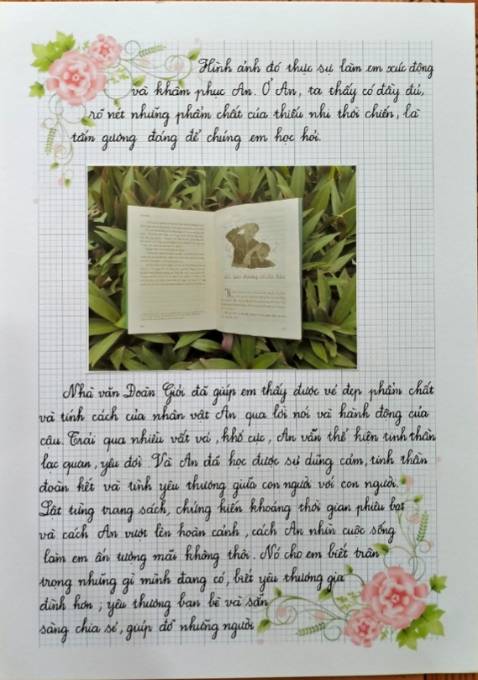 Hình ảnh đó thực sự làm em xúc động
và khâm phục An. Ở An, ta thấy có đầy đủ,
rõ nét những phẩm chất của thiếu nhi thời chiến, là
tấm gương đáng để chúng em học hỏi.
Nhà văn Đoàn Giỏi đã giúp em thấy được vẻ đẹp phẩm chất
và tính cách của nhân vật An qua lời nói và hành động của
cậu. Trải qua nhiều vất vả, khổ cực, An vẫn thể hiện tinh thần
lạc quan, yêu đời. Và An đã học được sự dũng cảm, tinh thần
đoàn kết và tình yêu thương giữa con người với con người.
Lật từng trang sách, chứng kiến khoảng thời gian phiêu bạt
và cách An vượt lên hoàn cảnh, cách An nhìn cuộc sống
làm em ấn tượng mãi không thôi. Nó cho em biết trân
trọng những gì mình đang có, biết yêu thương gia
đình hơn; yêu thương bạn bè và sẵn
sàng chia sẻ, giúp đỡ những người